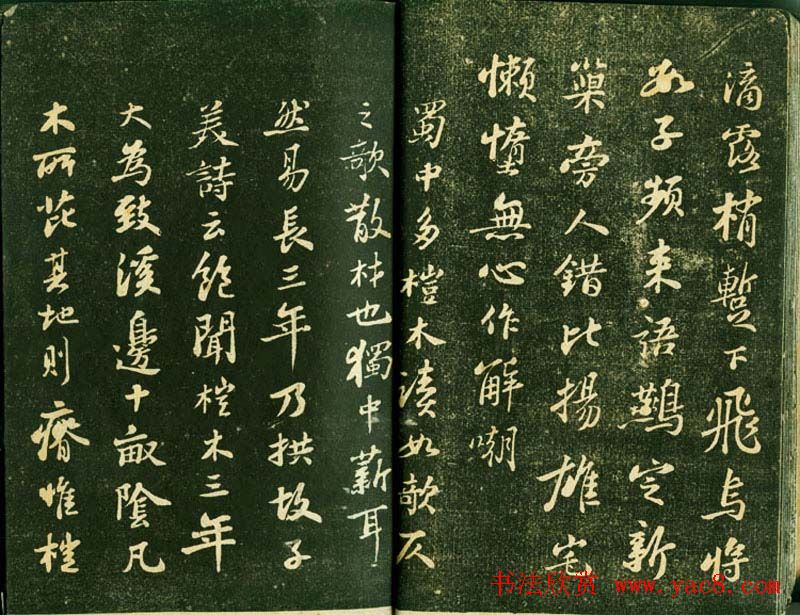 滴露梢暫下飛烏將
數子頻来語鷰定新
巢旁人錯比揚雄宅
懶惰無心作解嘲
蜀中多榿木讀如欹仄
之欹散材也獨中薪耳
然易長三年乃拱故子
美詩云飽聞榿木三年
大為致溪邊十畝陰凡
木所芘其地則瘠惟榿
书法欣赏 www.yac8.com